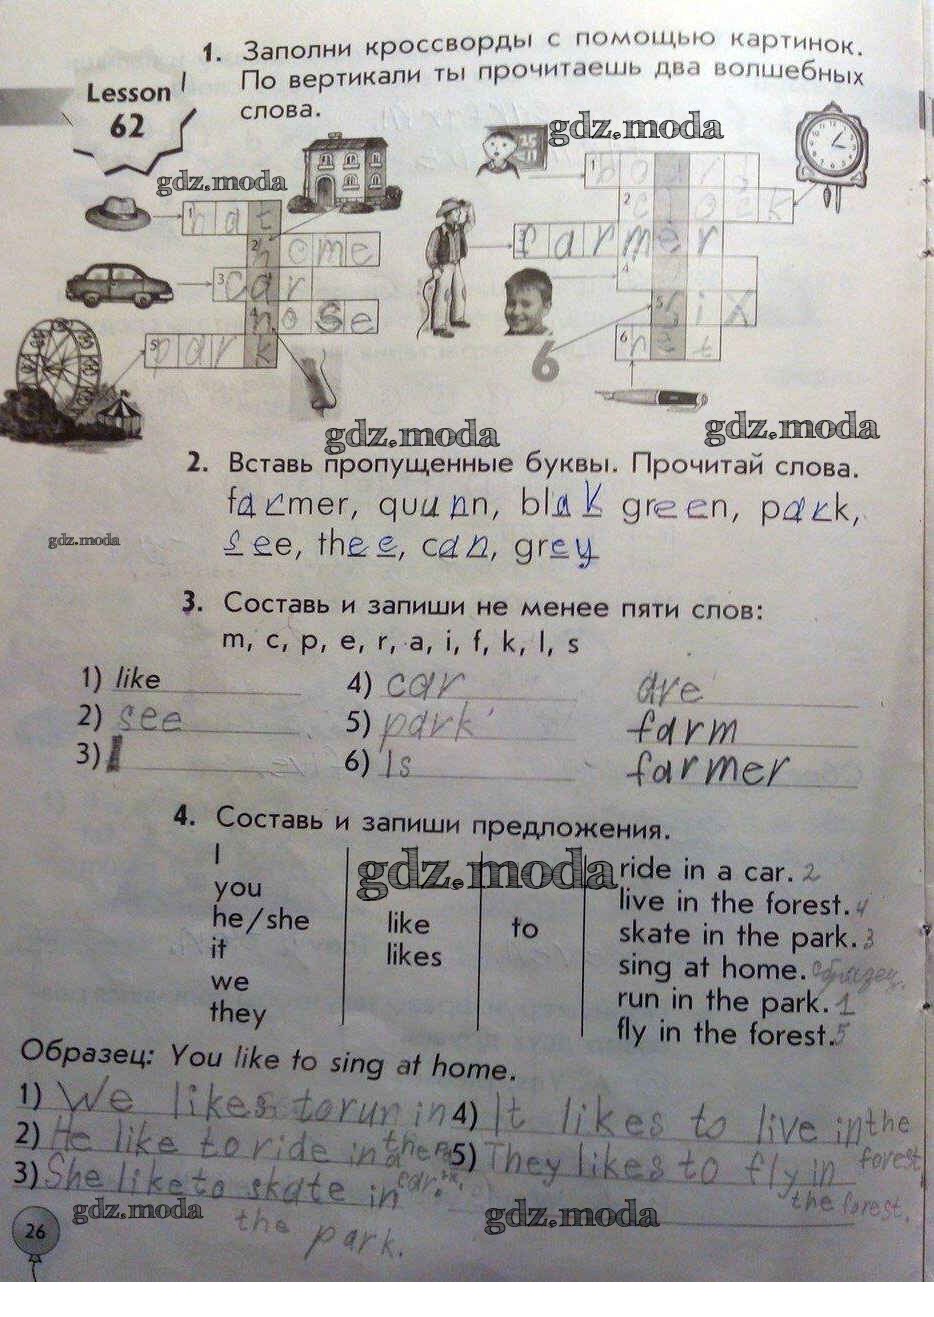 1. Заполни кроссворды с помощью картинок.
По вертикали ты прочитаешь два волшебных
слова.
Lesson
62
gdz.moda
gdz.moda
1 hat
2 home
3 car
4 nose
5 park
1 board
2 clock
farmer
4
5 six
6
6
gdz.moda
gdz.moda
2. Вставь пропущенные буквы. Прочитай слова.
farmer, quunn, blak green, park,
see, thee, can, grey
gdz.moda
3. Составь и запиши не менее пяти слов:
m, c, p, e, r, a, i, f, k, l, s
1) like 4) car are
2) see 5) park farm
3) I 6) Is farmer
4. Составь и запиши предложения.
gdz.moda
I
you
he/she
it
we
they
like
likes
to
ride in a car. 2
live in the forest. 4
skate in the park. 3
sing at home. образец.
run in the park. 1
fly in the forest. 5
Образец: You like to sing at home.
1) We likes to run in the
2) He like to ride in a car.
3) She like to skate in the park.
4) It likes to live in the forest
5) They likes to fly in the forest.
gdz.moda
gdz.moda
26